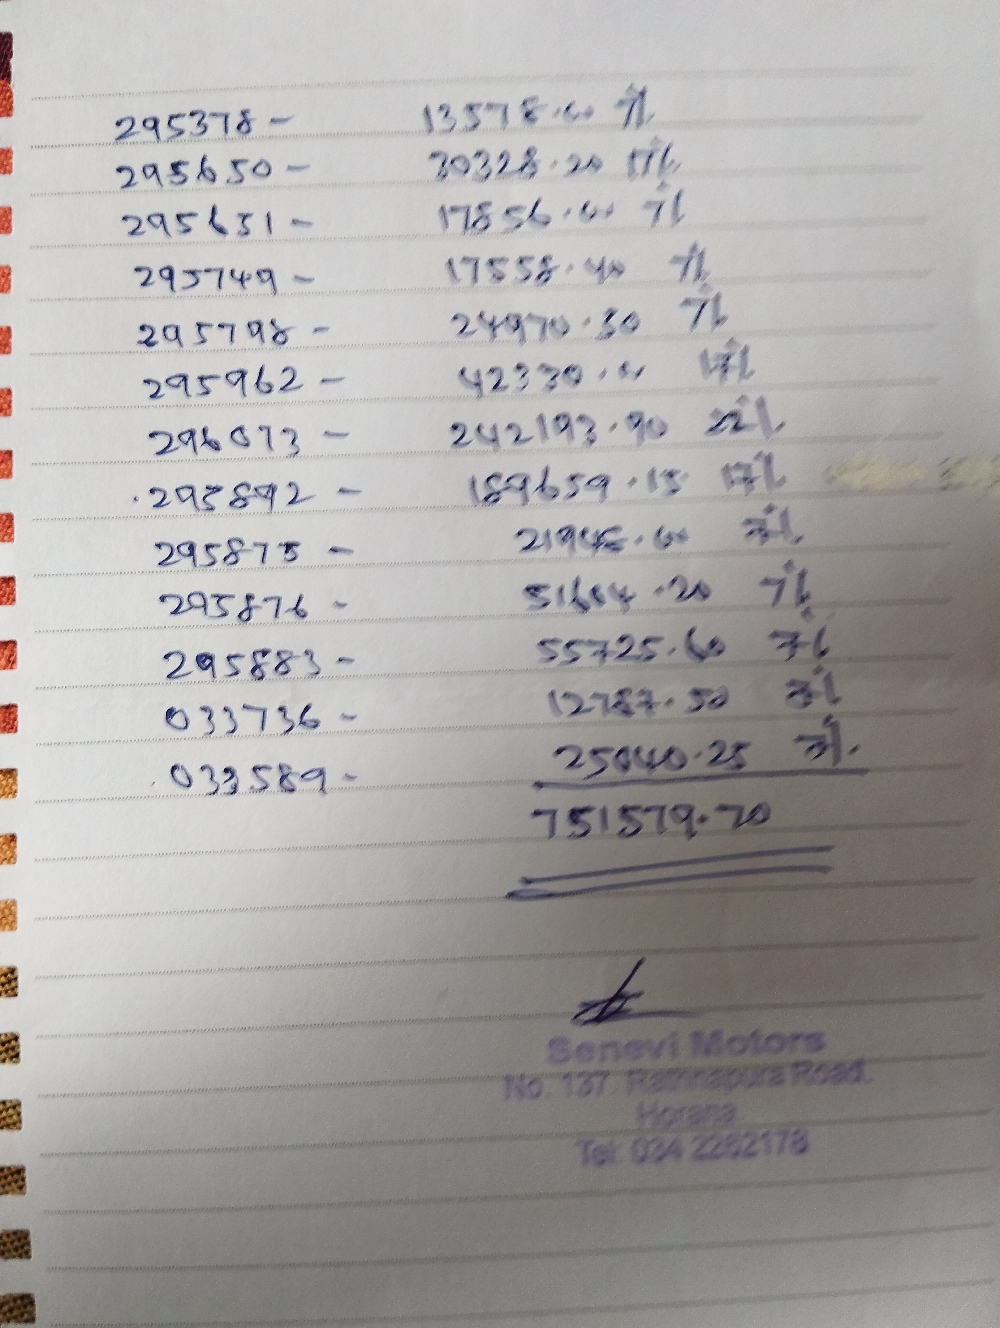 295378 - 13578.60 7%
295650 - 30328.20 17%
295651 - 17856.60 7%
295749 - 17558.40 7%
295798 - 24970.50 7%
295962 - 42330.00 17%
296073 - 242193.90 22%
295892 - 189659.15 17%
295875 - 21948.00 7%
295876 - 51604.20 7%
295883 - 55725.60 7%
033736 - 12787.50 7%
033589 - 25040.25 7%
751579.70
Senevi Motors
No. 137 Rathnapura Road.
Horana.
Tel: 034 2262178